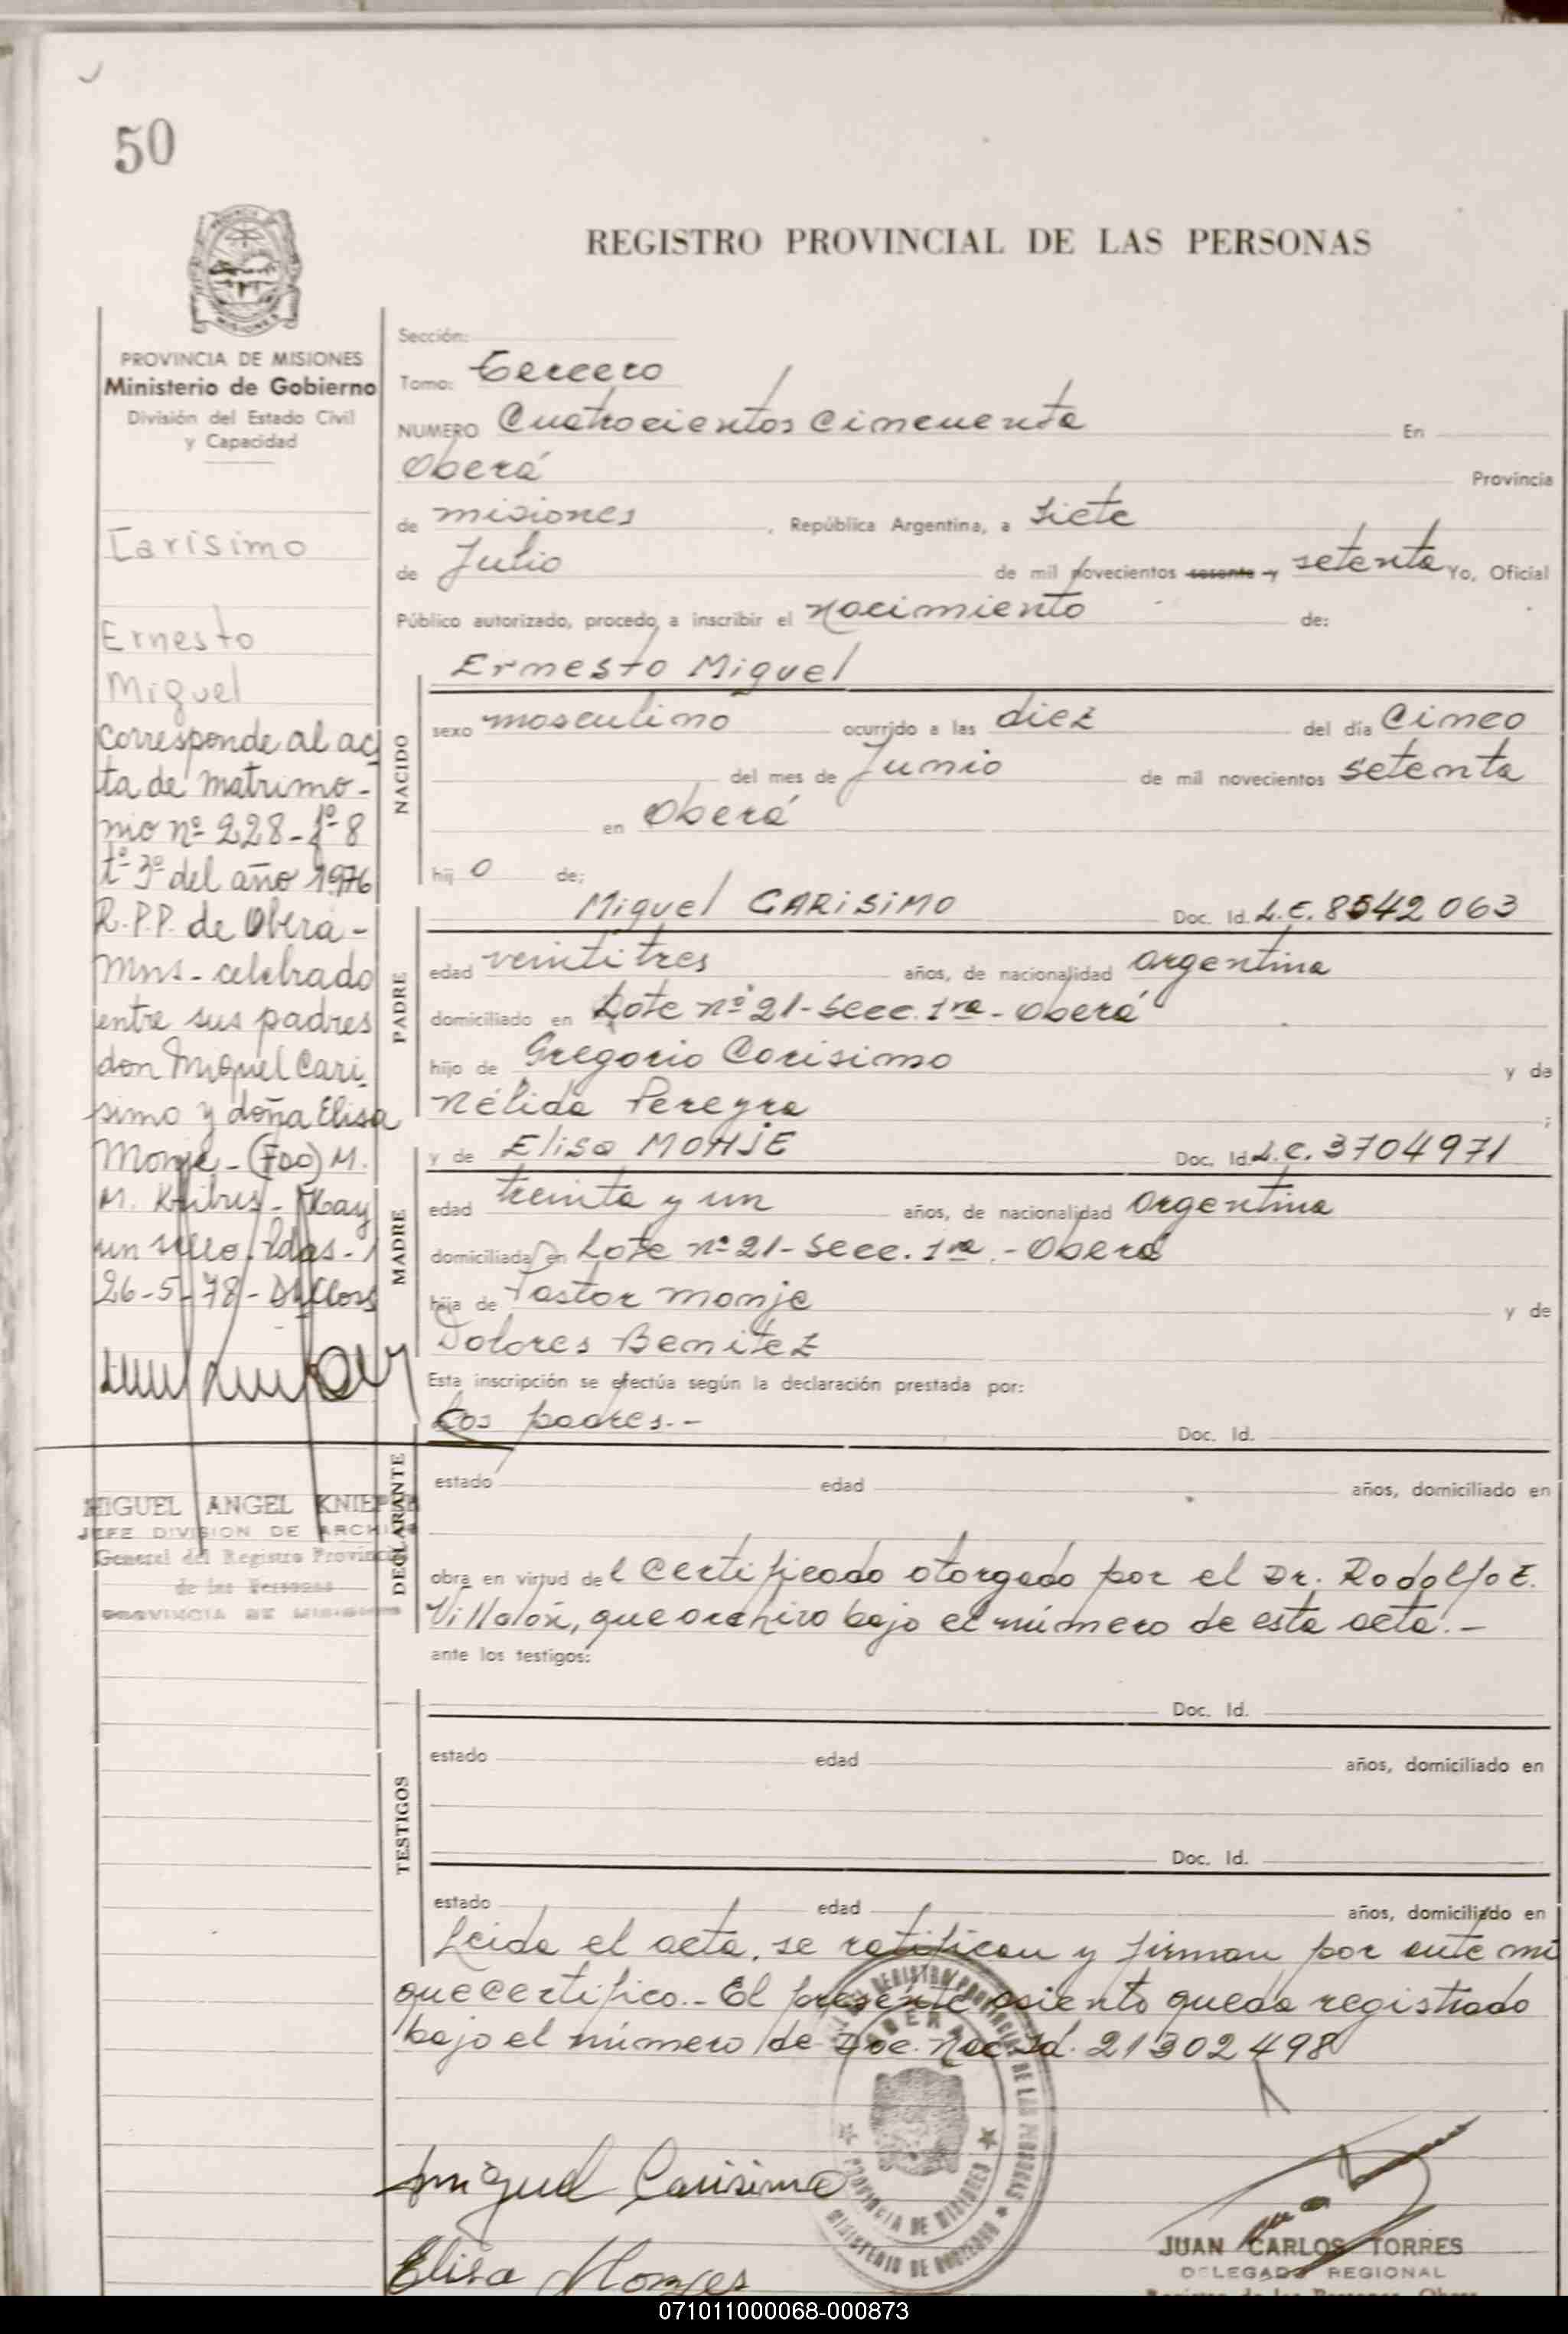 50
REGISTRO PROVINCIAL DE LAS PERSONAS
PROVINCIA DE MISIONES
Ministerio de Gobierno
División del Estado Civil
y Capacidad
Carisimo
Ernesto
Miguel
Corresponde al ac
ta de matrimo-
nio nº 228-fº 8
tº 3º del año 1976
R.P.P. de Oberá-
Mns- celebrado
entre sus padres
don Miguel Cari
simo y doña Elisa
Monje-(Fdo) M.
M. - Hay
un sello. Pdas-
26-5-78-
MIGUEL ANGEL
JEFE DIVISION DE ARCHIVO
General del Registro Provincial
de las Personas
PROVINCIA DE MISIONES
Sección:
Tomo: Tercero
NUMERO Cuatrocientos Cincuenta En
Oberá Provincia
de misiones , República Argentina, a siete
de Julio de mil novecientos sesenta y setenta Yo, Oficial
Público autorizado, procedo a inscribir el nacimiento de:
NACIDO
Ernesto Miguel
sexo masculino ocurrido a las diez del día Cinco
del mes de Junio de mil novecientos setenta
en Oberá
hij o de:
PADRE
Miguel CARISIMO Doc. Id. L.E. 8542063
edad veintitres años, de nacionalidad argentina
domiciliado en Lote nº 21-Secc. 1ra-Oberá
hijo de Gregorio Carisimo y de
Nélida Pereyra ;
MADRE
y de Elisa MONJE Doc. Id. L.C. 3704971
edad treinta y un años, de nacionalidad argentina
domiciliada en Lote nº 21-Secc. 1ra.-Oberá
hija de Pastor Monje y de
Dolores Benitez
Esta inscripción se efectúa según la declaración prestada por:
DECLARANTE
Los padres.- Doc. Id.
estado edad años, domiciliado en
obra en virtud del Certificado otorgado por el Dr. Rodolfo E.
Villalón, que archivo bajo el número de esta acta.-
ante los testigos:
TESTIGOS
Doc. Id.
estado edad años, domiciliado en
Doc. Id.
estado edad años, domiciliado en
Leida el acta, se ratifican y firman por ante mi
que certifico.- El presente asiento queda registrado
bajo el número de Doc. Nac. Id. 21302498
Miguel Carisimo
Elisa Monges
PROVINCIA DE MISIONES
MINISTERIO DE GOBIERNO
JUAN CARLOS TORRES
DELEGADO REGIONAL
071011000068-000873